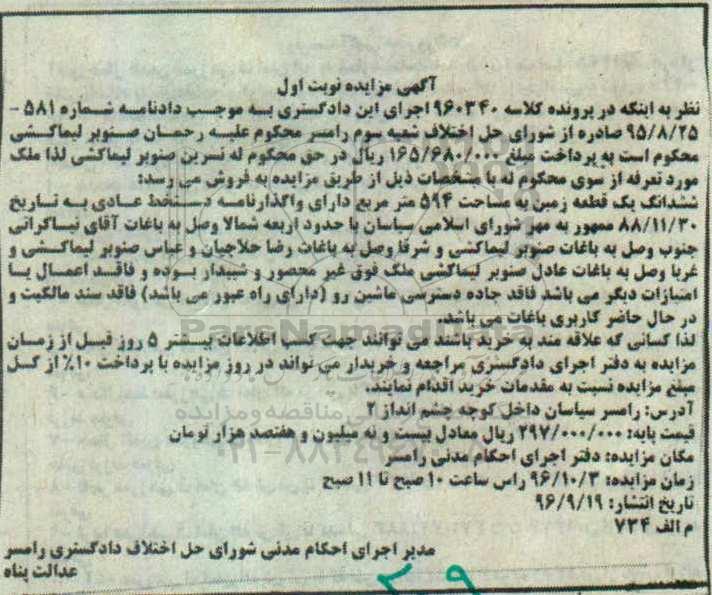 آگهی مزایده نوبت اول
نظر به اینکه در پرونده کلاسه ۹۶۰۳۴۰ اجرای این دادگستری به موجب دادنامه شماره ۵۸۱ -
۹۵/۸/۲۵ صادره از شورای حل اختلاف شعبه سوم رامسر محکوم علیه رحمان صنوبر لیماکشی
محکوم است به پرداخت مبلغ ۱۶۵/۶۸۰/۰۰۰ ریال در حق محکوم له نسرین صنوبر لیماکشی لذا ملک
مورد تعرفه از سوی محکوم له با مشخصات ذیل از طریق مزایده به فروش می رسد:
ششدانگ یک قطعه زمین به مساحت ۵۹۴ متر مربع دارای واگذارنامه دستخط عادی به تاریخ
۸۸/۱۱/۳۰ ممهور به مهر شورای اسلامی سیاسان با حدود اربعه شمالا وصل به باغات آقای نیاکراتی
جنوب وصل به باغات صنوبر لیماکشی و شرقا وصل به باغات رضا حلاجیان و عباس صنوبر لیماکشی و
غربا وصل به باغات عادل صنوبر لیماکشی ملک فوق غیر محصور و شیبدار بوده و فاقد اعمال یا
امتیازات دیگر می باشد فاقد جاده دسترسی ماشین رو (دارای راه عبور می باشد) فاقد سند مالکیت و
در حال حاضر کاربری باغات می باشد.
لذا کسانی که علاقه مند به خرید باشند می توانند جهت کسب اطلاعات بیشتر ۵ روز قبل از زمان
مزایده به دفتر اجرای دادگستری مراجعه و خریدار می تواند در روز مزایده با پرداخت ۱۰٪ از کل
مبلغ مزایده نسبت به مقدمات خرید اقدام نمایند.
آدرس: رامسر سیاسان داخل کوچه چشم انداز ۲
قیمت پایه: ۲۹۷/۰۰۰/۰۰۰ ریال معادل بیست و نه میلیون و هفتصد هزار تومان
مکان مزایده: دفتر اجرای احکام مدنی رامسر
زمان مزایده: ۹۶/۱۰/۳ راس ساعت ۱۰ صبح تا ۱۱ صبح
تاریخ انتشار: ۹۶/۹/۱۹
م الف ۷۳۴
مدیر اجرای احکام مدنی شورای حل اختلاف دادگستری رامسر
عدالت پناه
ParsNamadData